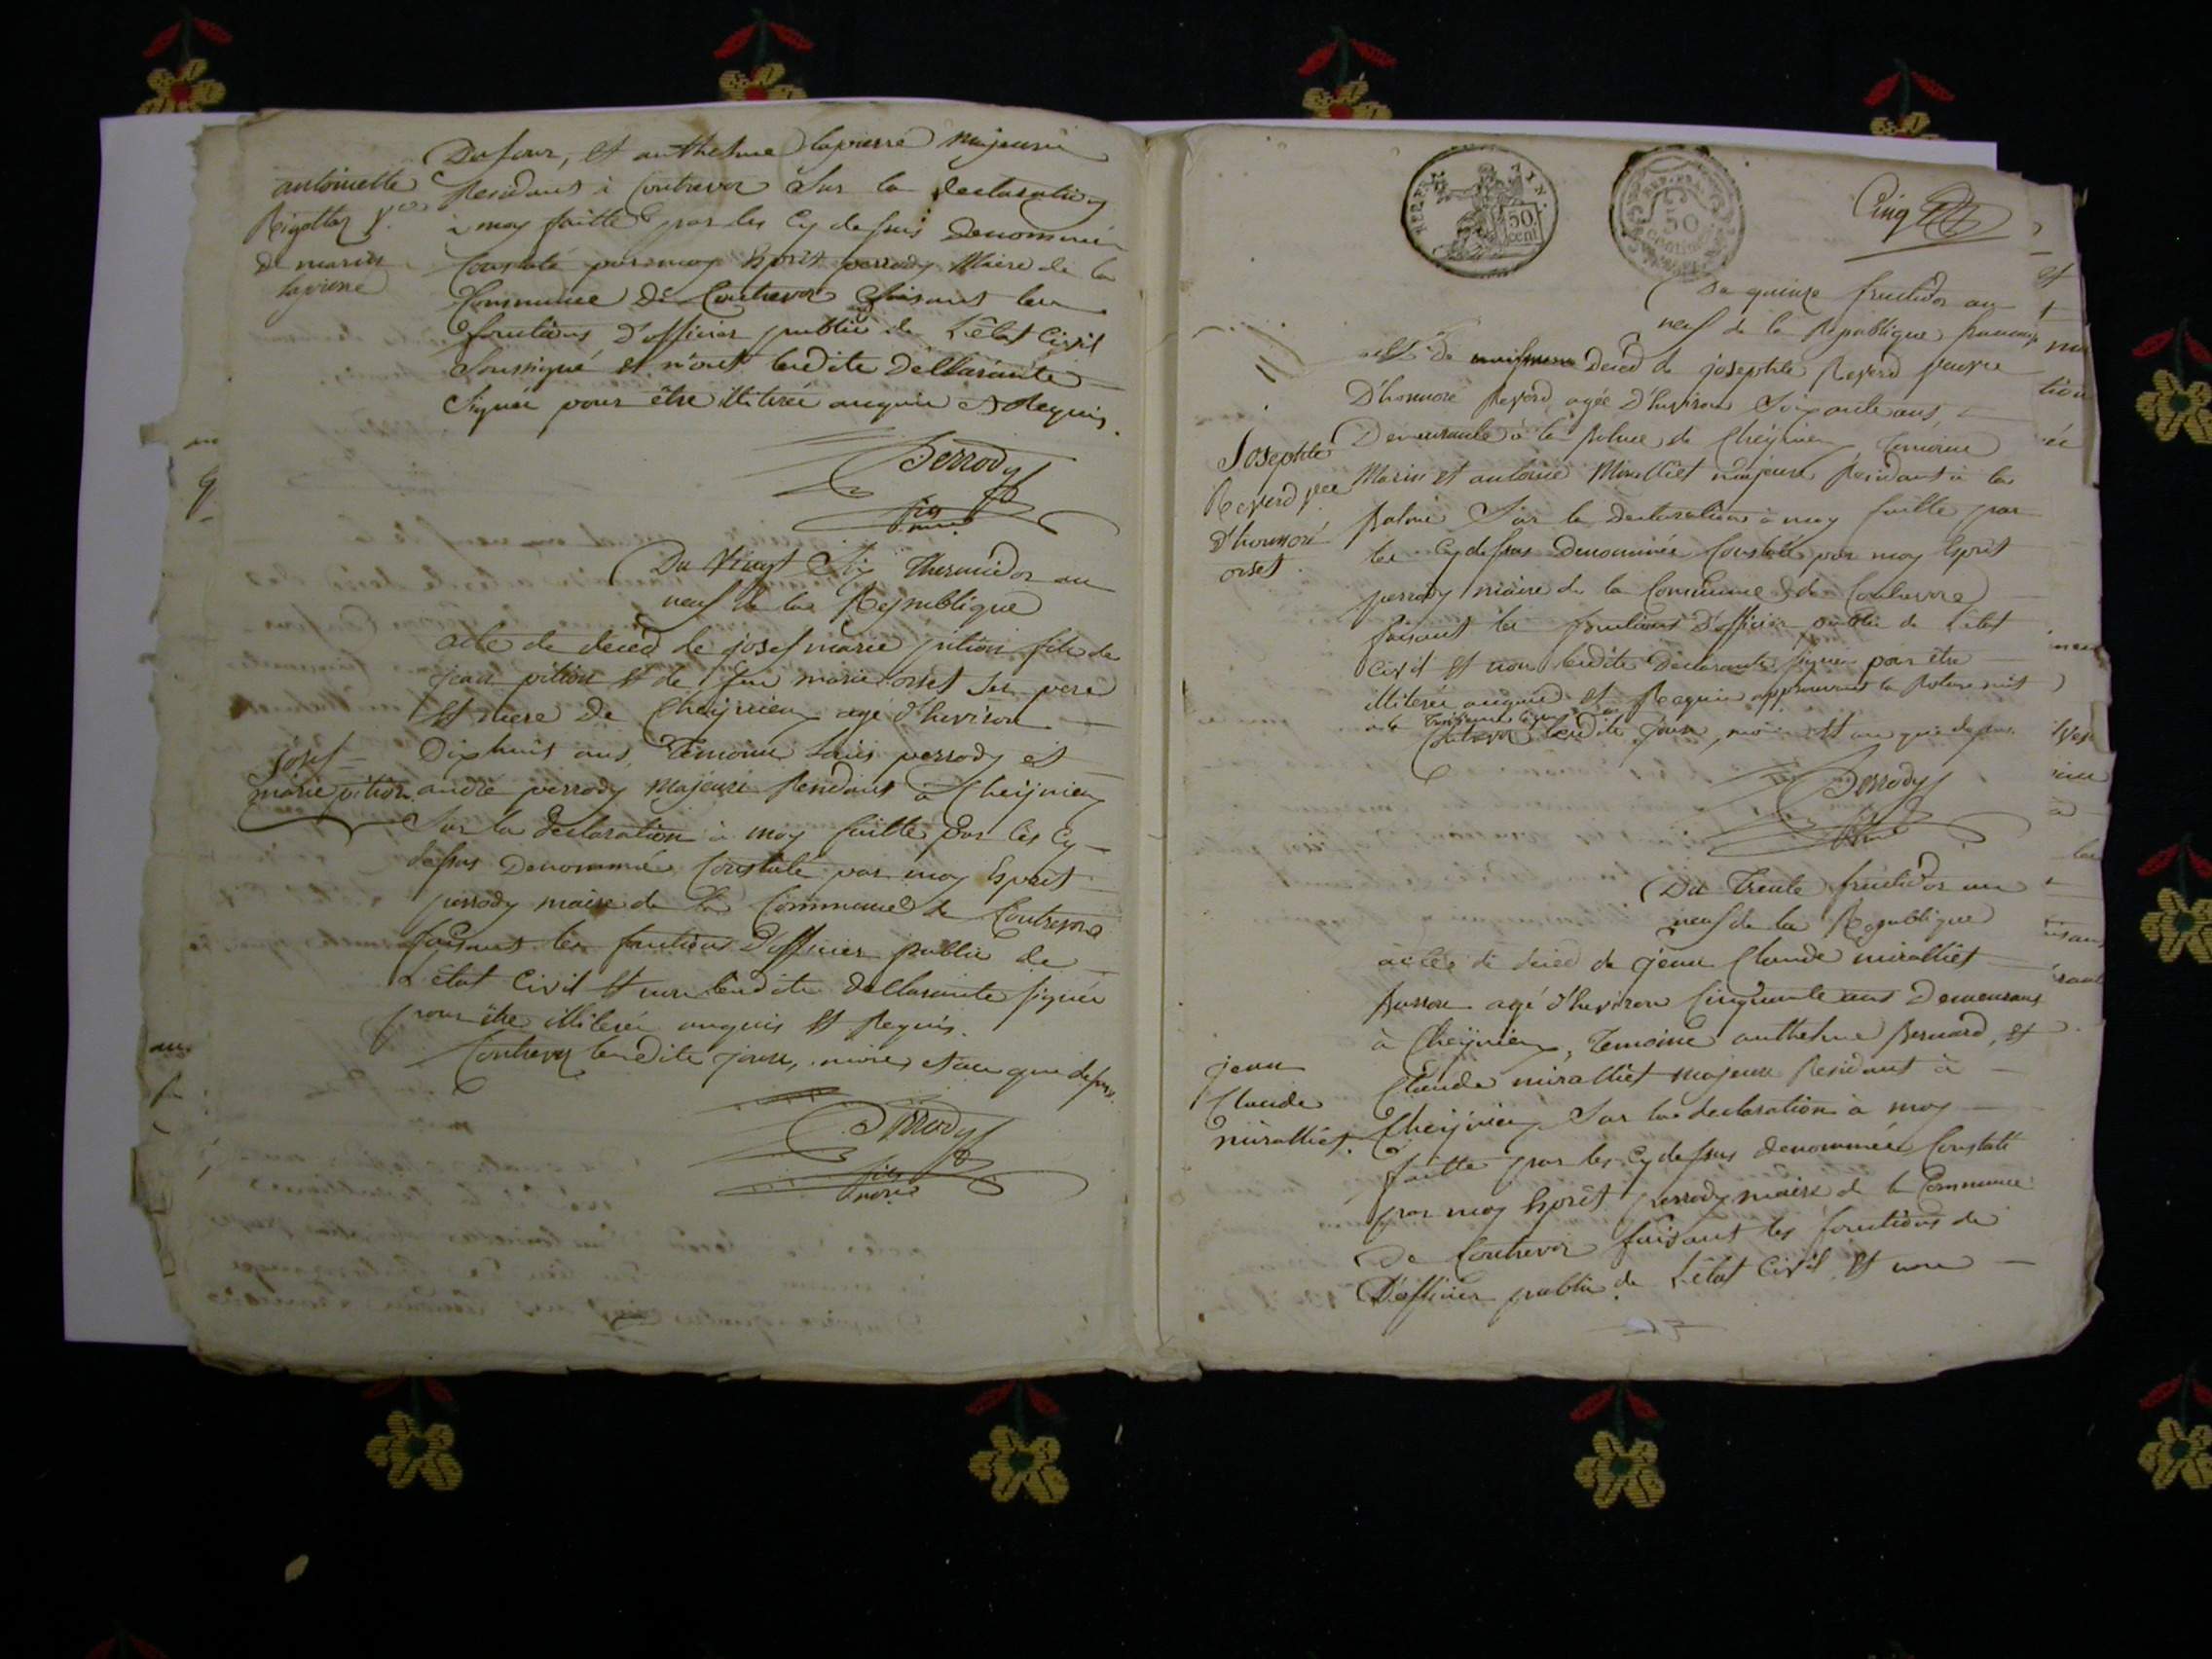 Dufour, et anthelme lapierre majeurs
antoinette
Rigollet v.ve
de marin
lapierre
Residants à Contrevoz Sur la declaration
à moy faitte par les Cy dessus denommés
Constaté par moy Esprit perrody Maire de la
Commune De Contrevoz faisant les
fonctions D'officier public de L'état Civil
Soussigné et n'ont lesdits Declarants
Signés pour être illiterés enquis et Requis.
Perrody
maire
Du Vingt Six Thermidor an
neuf de la Republique
acte de deced de josef marie pition fils de
jean pition et de feu marie orset ses pere
et mere De Cheignieu agé d'heviron
Dix huit ans, Temoins Louis perrody et
josef
marie pition
andré perrody Majeurs Residants à Cheignieu
Sur la declaration à moy faitte par les Cy
dessus Denommés Constaté par moy Esprit
perrody maire de la Commune de Contrevoz
faisant les fonctions D'officier public de
L'état Civil et non lesdits declarants signés
pour être illiterés enquis et Requis.
Contrevoz lesdits jour, mois et an que dessus.
Perrody
maire
REP. FRA.
50
cent
REP. FRA.
50
Cinq
Du quinze fructidor an
neuf de la Republique francaise
acte de deced de josephte Reverd veuve
D'honnoré agée D'heviron Soixante ans
Demeurante à la palue de Cheignieu Temoins
Josephte
Reverd v.ve
d'honnoré
orset
Marin et antoine Miralliet majeurs Residants à la
palue Sur la declaration à moy faitte par
les Cy dessus Denommés Constaté par moy Esprit
perrody maire de la Commune de Contrevoz
faisant les fonctions D'officier public de L'état
Civil et non lesdits declarants signés pour être
illiterés enquis et Requis approuvant la Rature mis
à la Troisieme ligne
Contrevoz lesdits jour, mois et an que dessus.
Perrody
maire
Du Trente fructidor an
neuf de la Republique
acte de deced de jean Claude miralliet
agé d'heviron Cinquante ans Demeurant
à Cheignieu, Temoins anthelme Bernard, et
jean
Claude
miralliet.
Claude miralliet majeurs Residants à
Cheignieu Sur la declaration à moy
faitte par les Cy dessus denommés Constaté
par moy Esprit perrody maire de la Commune
De Contrevoz faisant les fonctions de
D'officier public de L'état Civil et non